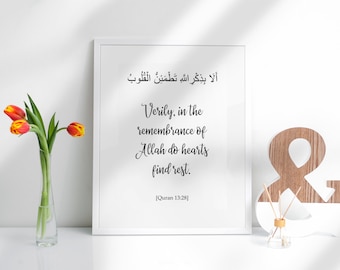 أَلَا بِذِكْرِ اللَّهِ تَطْمَئِنُّ الْقُلُوبُ
Verily, in the
remembrance of
Allah do hearts
find rest.
[Quran 13:28]
&